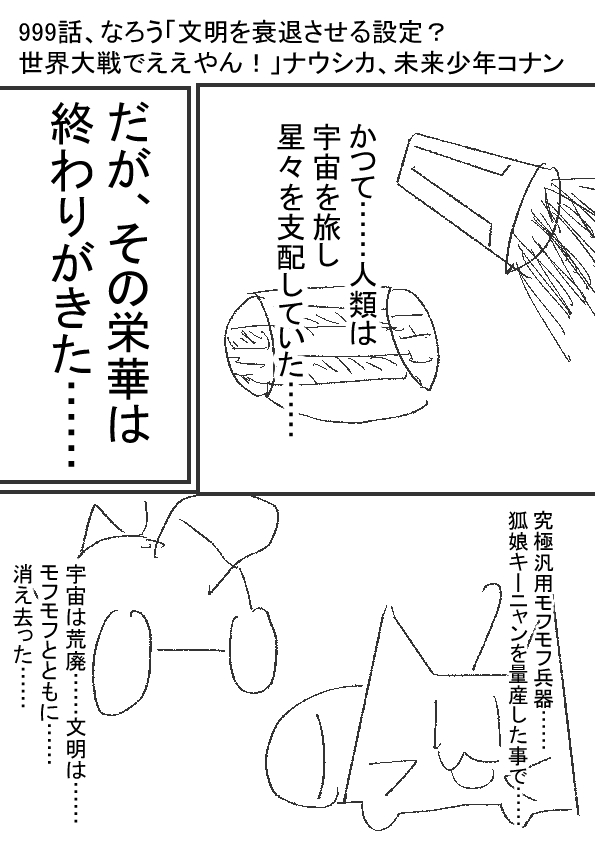 999話、なろう「文明を衰退させる設定？
世界大戦でええやん！」ナウシカ、未来少年コナン
かつて……人類は
宇宙を旅し
星々を支配していた……
だが、その栄華は
終わりがきた……
究極汎用モフモフ兵器……
狐娘キーニャンを量産した事で……
宇宙は荒廃……文明は……
モフモフとともに……
消え去った……